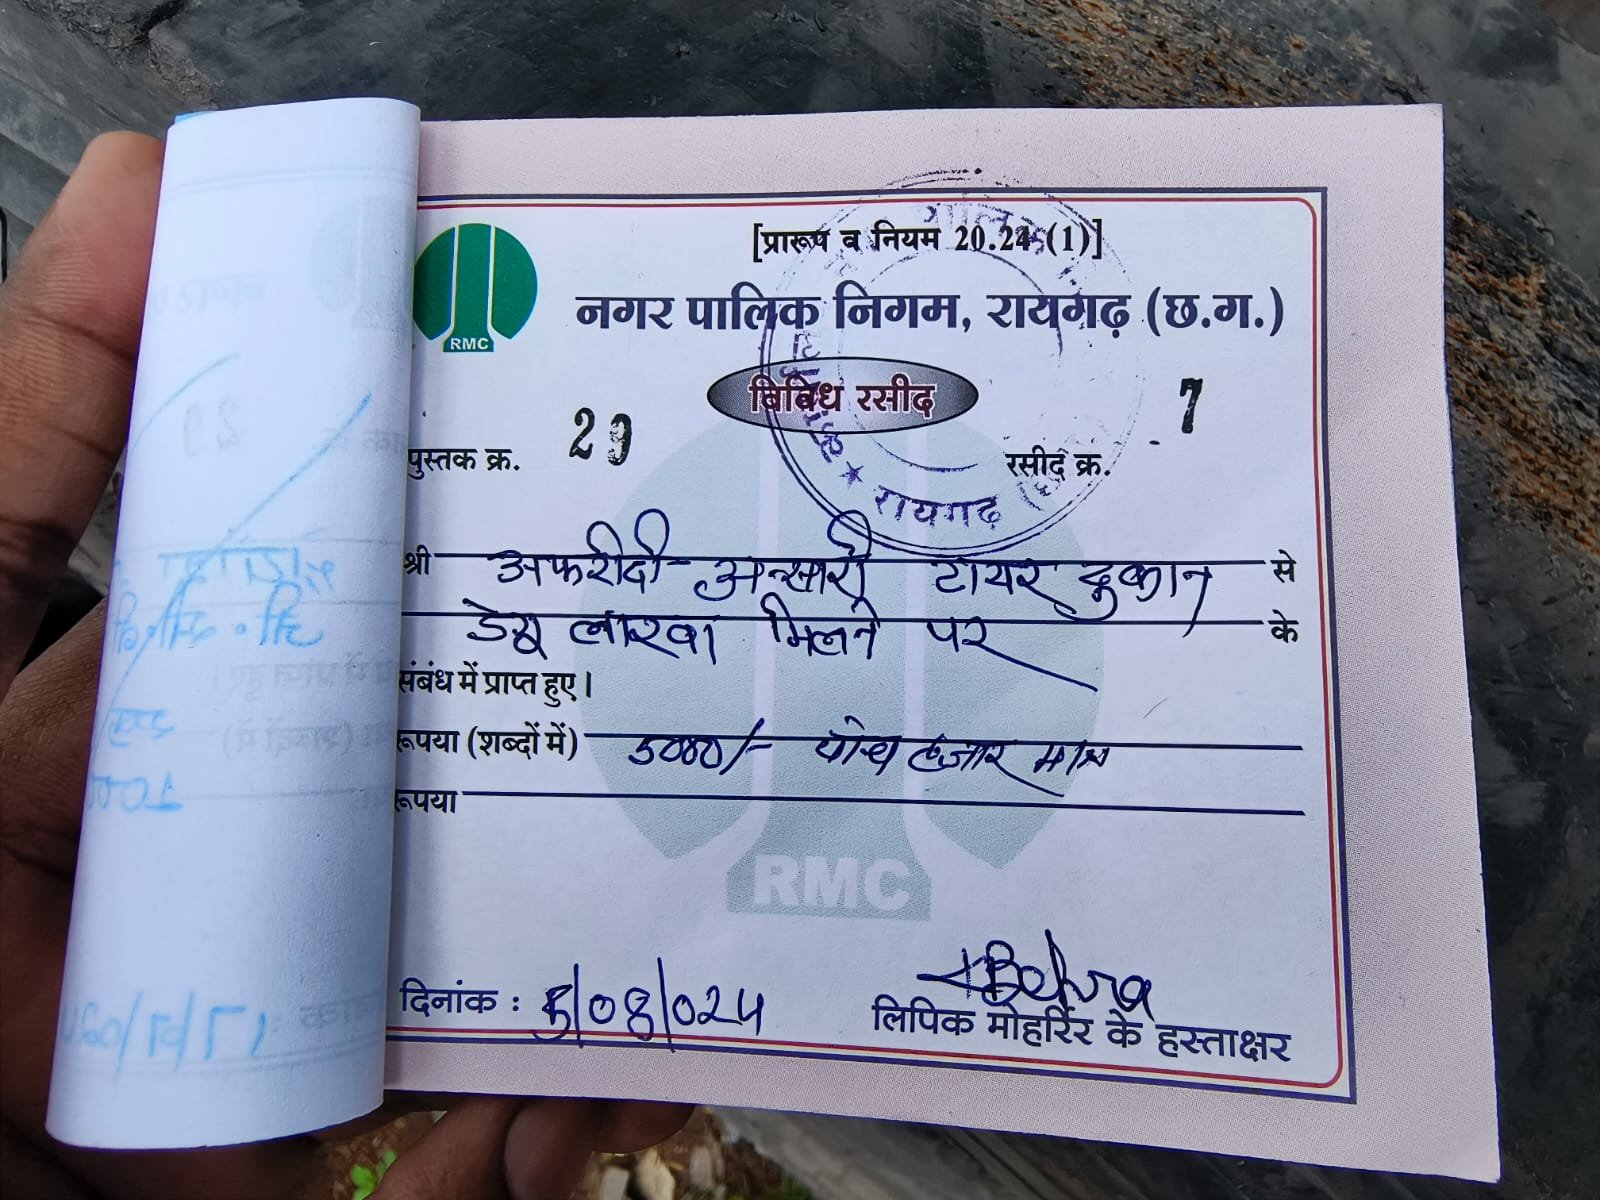 [प्रारूप व नियम 20.24 (1)]
नगर पालिक निगम, रायगढ़ (छ.ग.)
RMC
विविध रसीद
पुस्तक क्र. 29
रसीद क्र. 7
रायगढ़
श्री अफरीदी अन्सारी टायर दुकान से
डेंगू लारवा मिलने पर के
संबंध में प्राप्त हुए।
रूपया (शब्दों में) 5000/- पाँच हजार मात्र
रूपया
RMC
दिनांक : 5/08/024
Behra
लिपिक मोहर्रिर के हस्ताक्षर